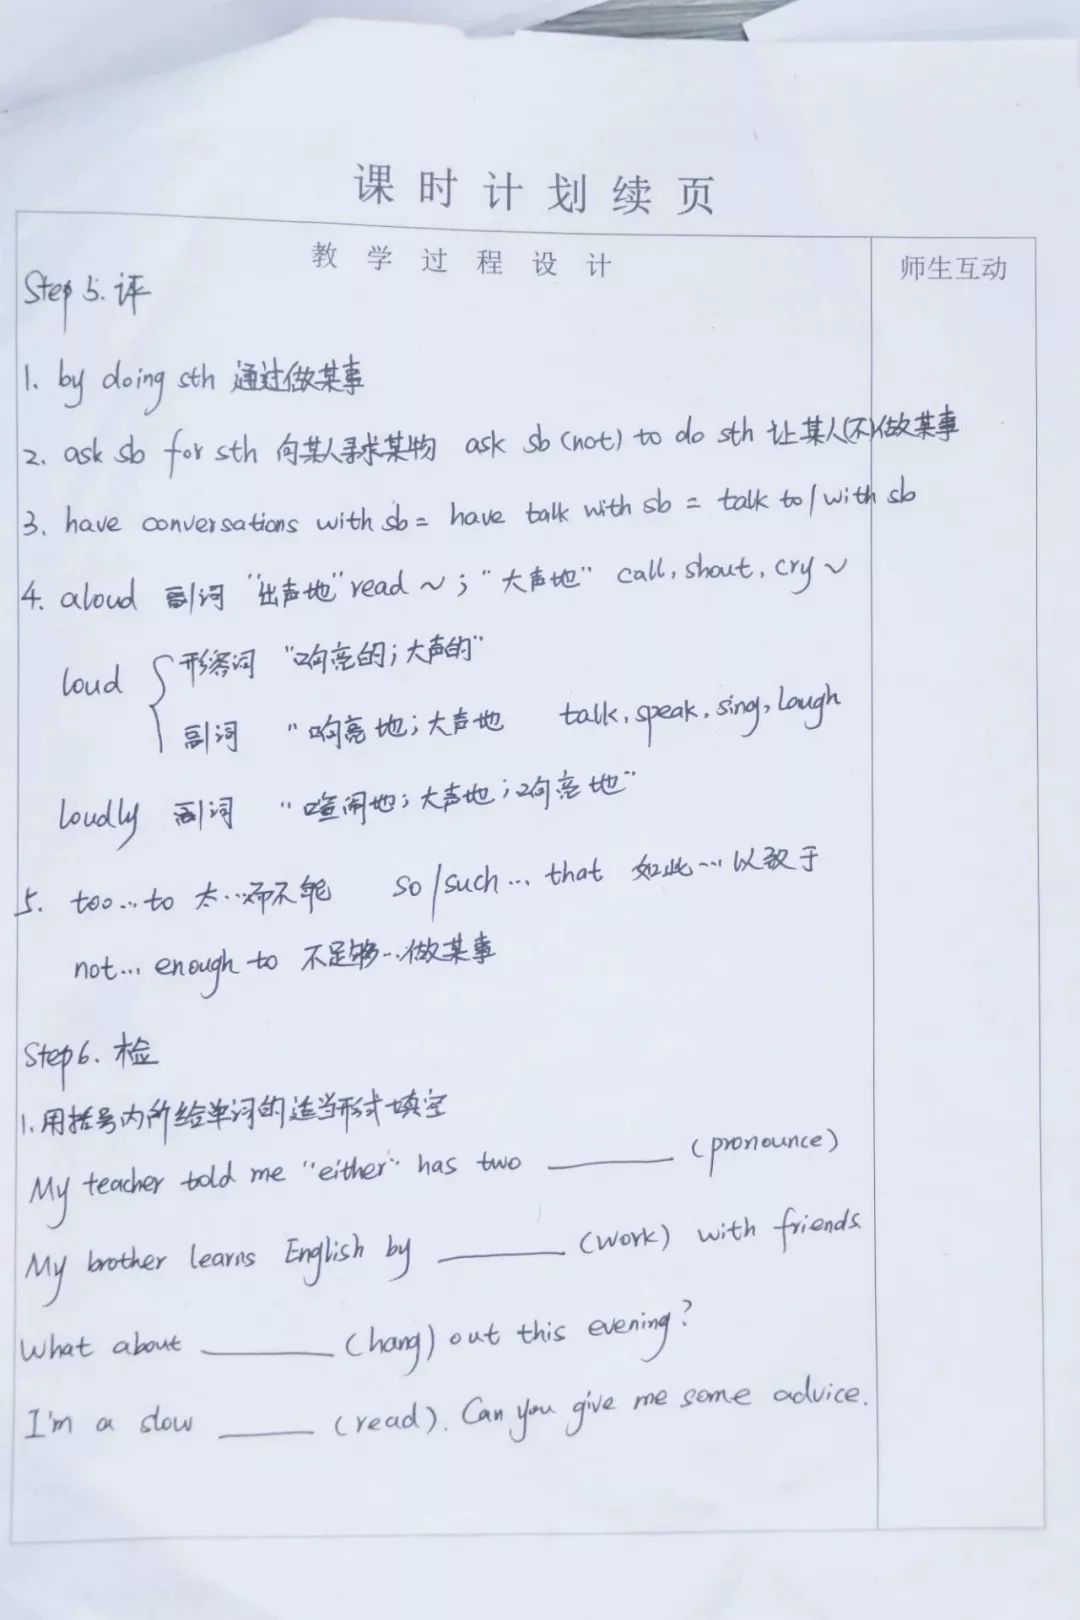 课时计划续页
教学过程设计
师生互动
Step 5. 评
1. by doing sth 通过做某事
2. ask sb for sth 向某人寻求某物 ask sb (not) to do sth 让某人(不)做某事
3. have conversations with sb = have talk with sb = talk to / with sb
4. aloud 副词 "出声地" read ~ ; "大声地" call, shout, cry ~
loud { 形容词 "响亮的;大声的"
副词 "响亮地;大声地 talk, speak, sing, laugh
loudly 副词 "喧闹地;大声地;响亮地"
5. too...to 太...而不能 so / such ... that 如此...以致于
not... enough to 不足够...做某事
Step 6. 检
1. 用括号内所给单词的适当形式填空
My teacher told me "either" has two ______ (pronounce)
My brother learns English by ______ (work) with friends.
What about ______ (hang) out this evening?
I'm a slow ______ (read). Can you give me some advice.